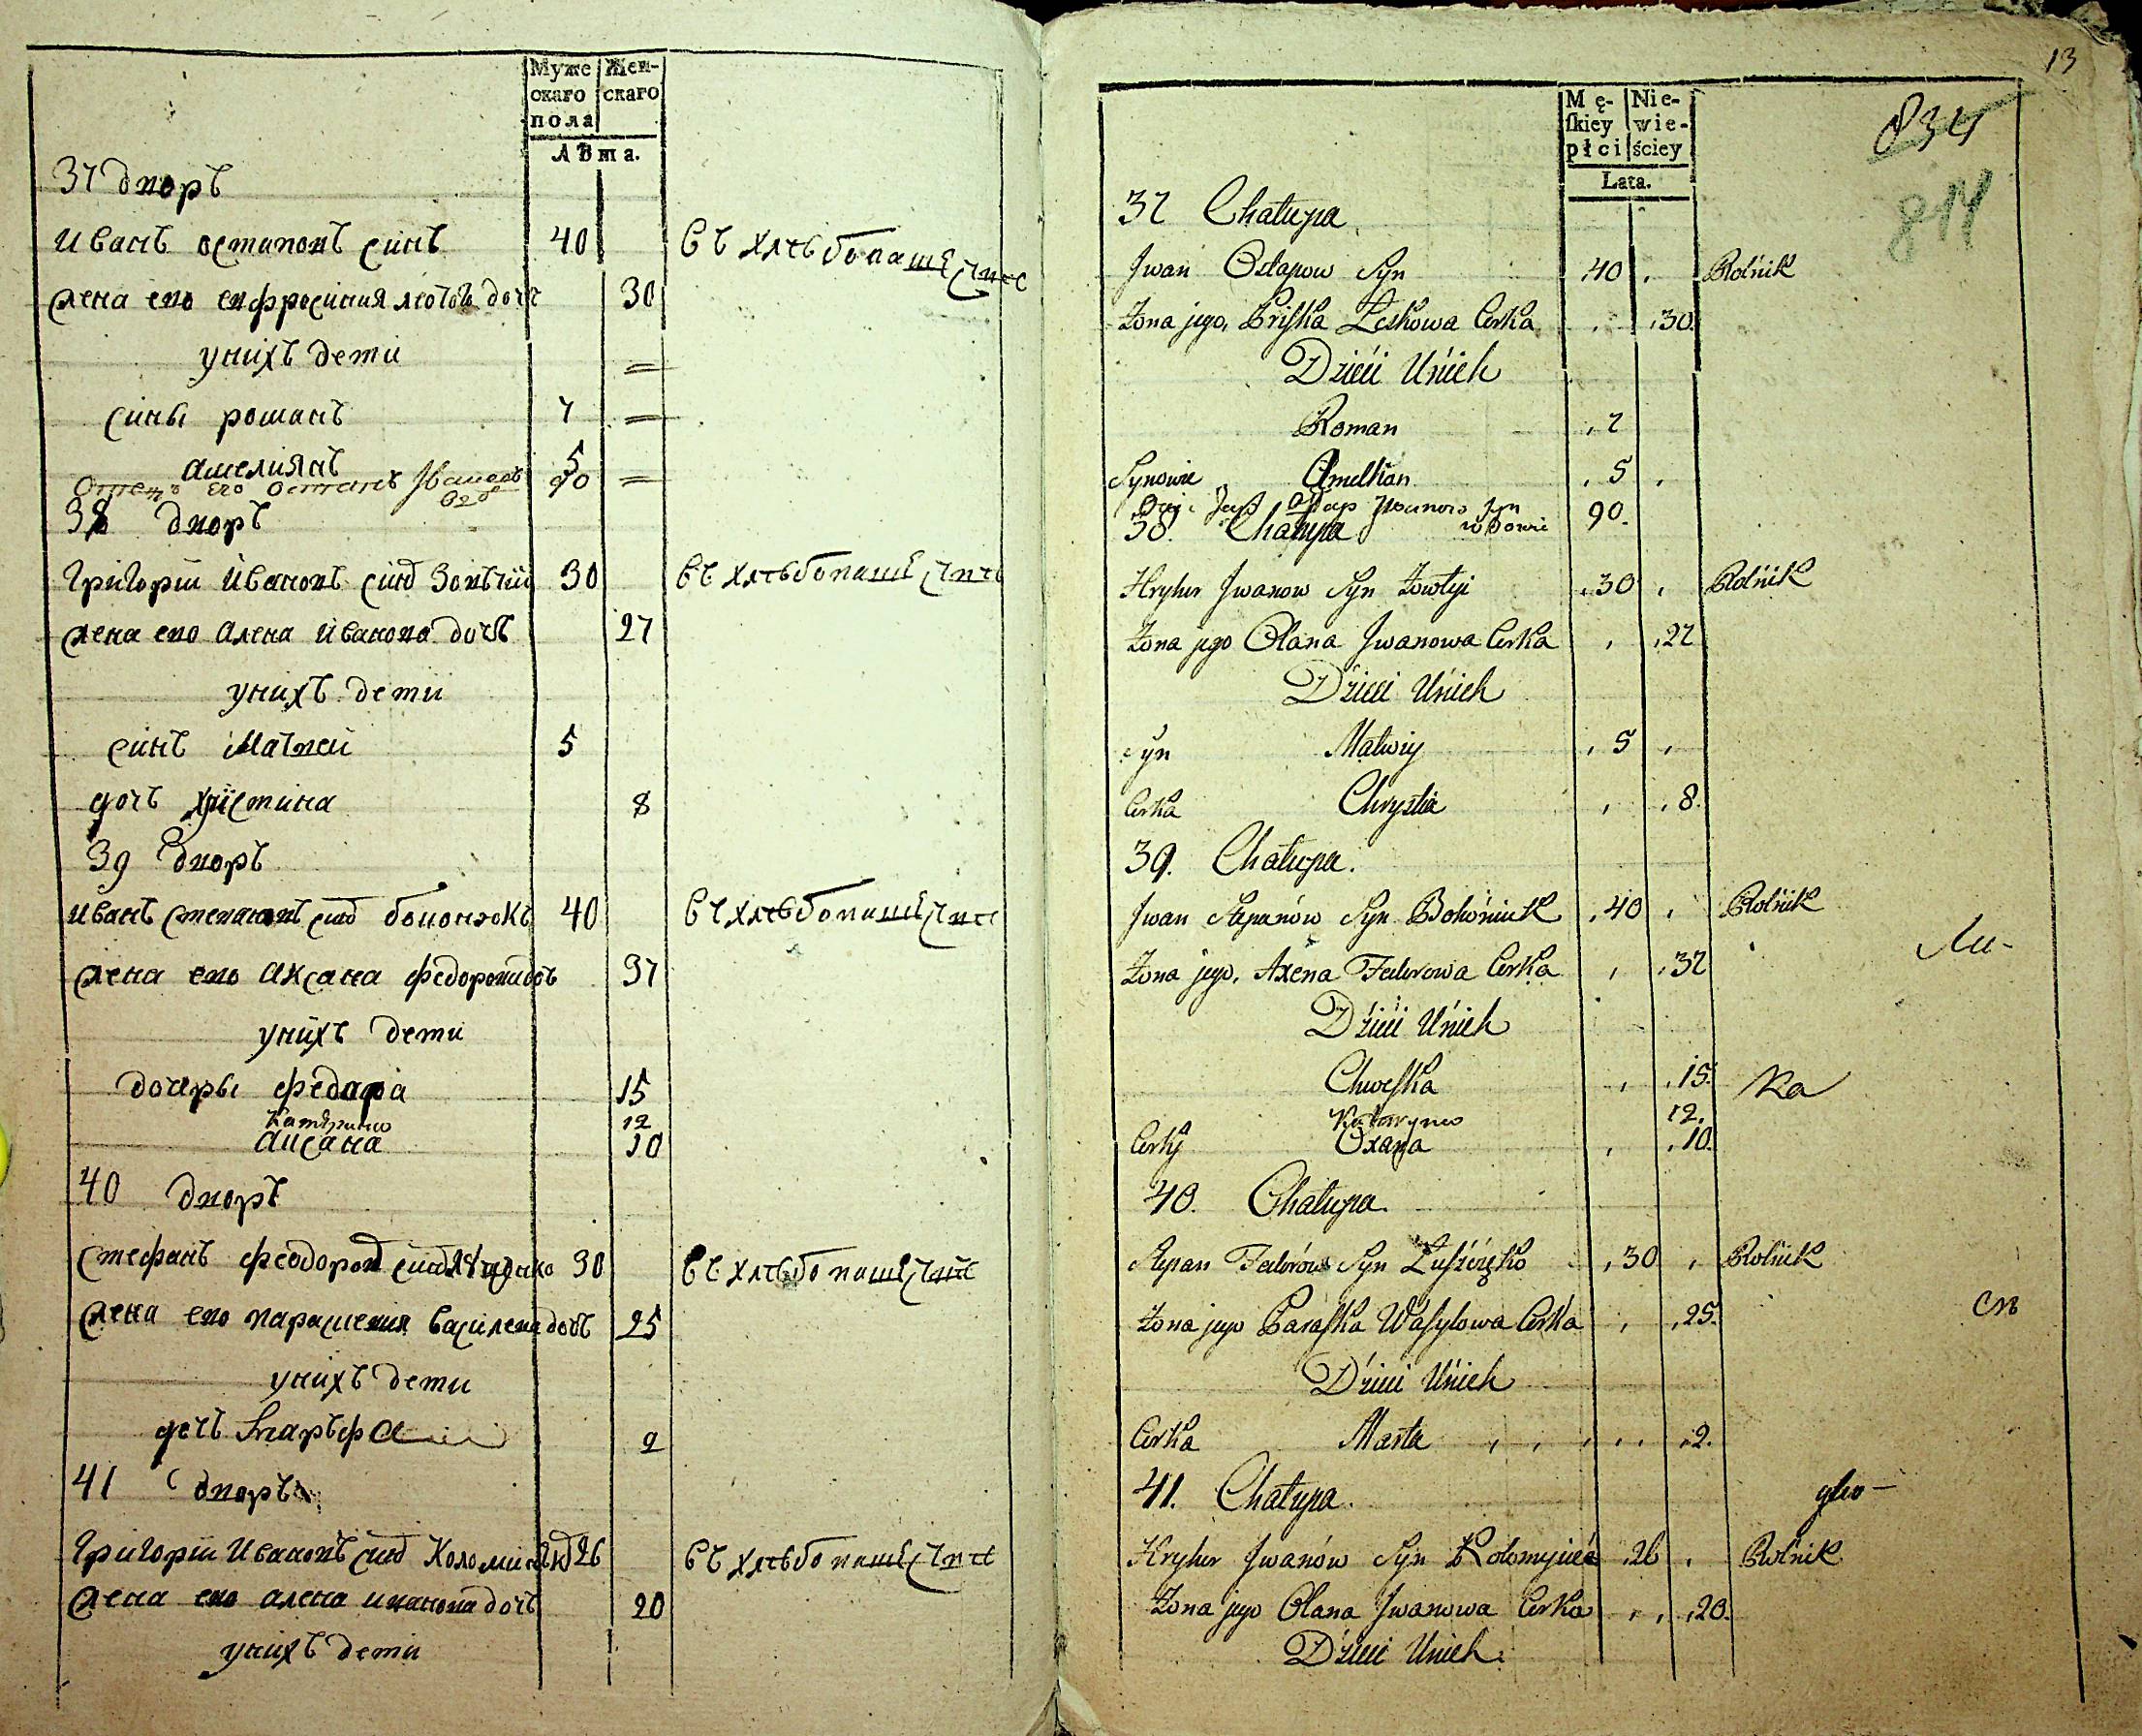 Муже
скаго
пола
Жен-
скаго
Лѣта.
37 дворъ
Иванъ остаповъ синъ 40 въ хлѣбопашествѣ
жена ево ефросиния лютова дочь 30
у нихъ дети
сины романъ 7
амелиянъ 5
Отецъ его Остапъ Ивановъ 90
вдо
38 дворъ
Григорій Ивановъ синъ 30 въ хлѣбопашествѣ
жена ево Алена Иванова дочь 27
у нихъ дети
синъ Матвей 5
дочь христина 8
39 дворъ
Иванъ степановъ синъ бонюкъ 40 въ хлѣбопашествѣ
жена ево Аксана федорова дочь 37
у нихъ дети
дочеры федора 15
Катерина 12
аксана 10
40 дворъ
Стефанъ феодоровъ синъ 30 въ хлѣбопашествѣ
жена ево параскевия василева дочь 25
у нихъ дети
дочь марѳа 2
41 дворъ
Григорій Ивановъ синъ Коломиецъ 26 въ хлѣбопашествѣ
жена ево алена иванова дочь 20
у нихъ дети
13
Mę-
ſkiey
płci
Nie-
wie-
ściey
Lata.
834
814
37 Chałupa
Jwan Ostapow Syn 40 Rolnik
Żona jego, Priſka Leskowa Corka 30.
Dzieći Unich
Roman 7
Synowie Amelkan 5
Oyciec Jego Ostap Jwanow Syn
wdowiec 90.
38. Chałupa
Hryhor Jwanow Syn Żowtyi 30 Rolnik
Żona jego Olana Jwanowa Corka 27
Dzieci Unich
Syn Matwiy 5
Corka Chrystia 8.
39. Chałupa.
Jwan Stepanów Syn Bohoniuk 40 Rolnik
Ли-
Żona jego, Axena Fedorowa Corka 37
Dzieći Unich
Chweſka 15.
ка
Kataryna 12.
Corky Oxana 10.
40. Chałupa.
Stepan Fedorów Syn 30 Rolnik
Żona jego Paraſka Waſylowa Corka 25.
съ
Dzieci Unich
Corka Marta 2.
41. Chałupa.
Hryhor Jwanów Syn Kołomyiec 26 Rolnik
Żona jego Olana Jwanowa Corka 20.
Dzieci Unich.